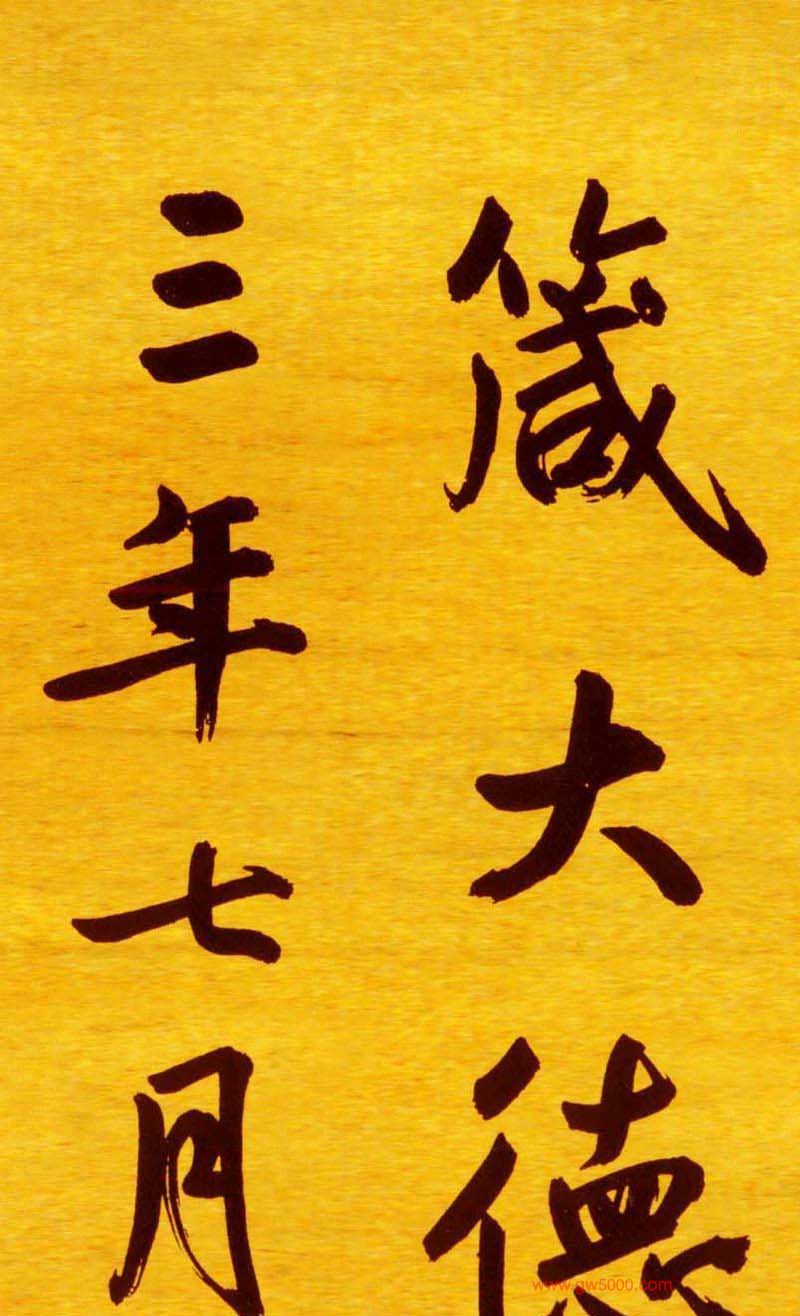 箴大德
三年七月
www.gw5000.com